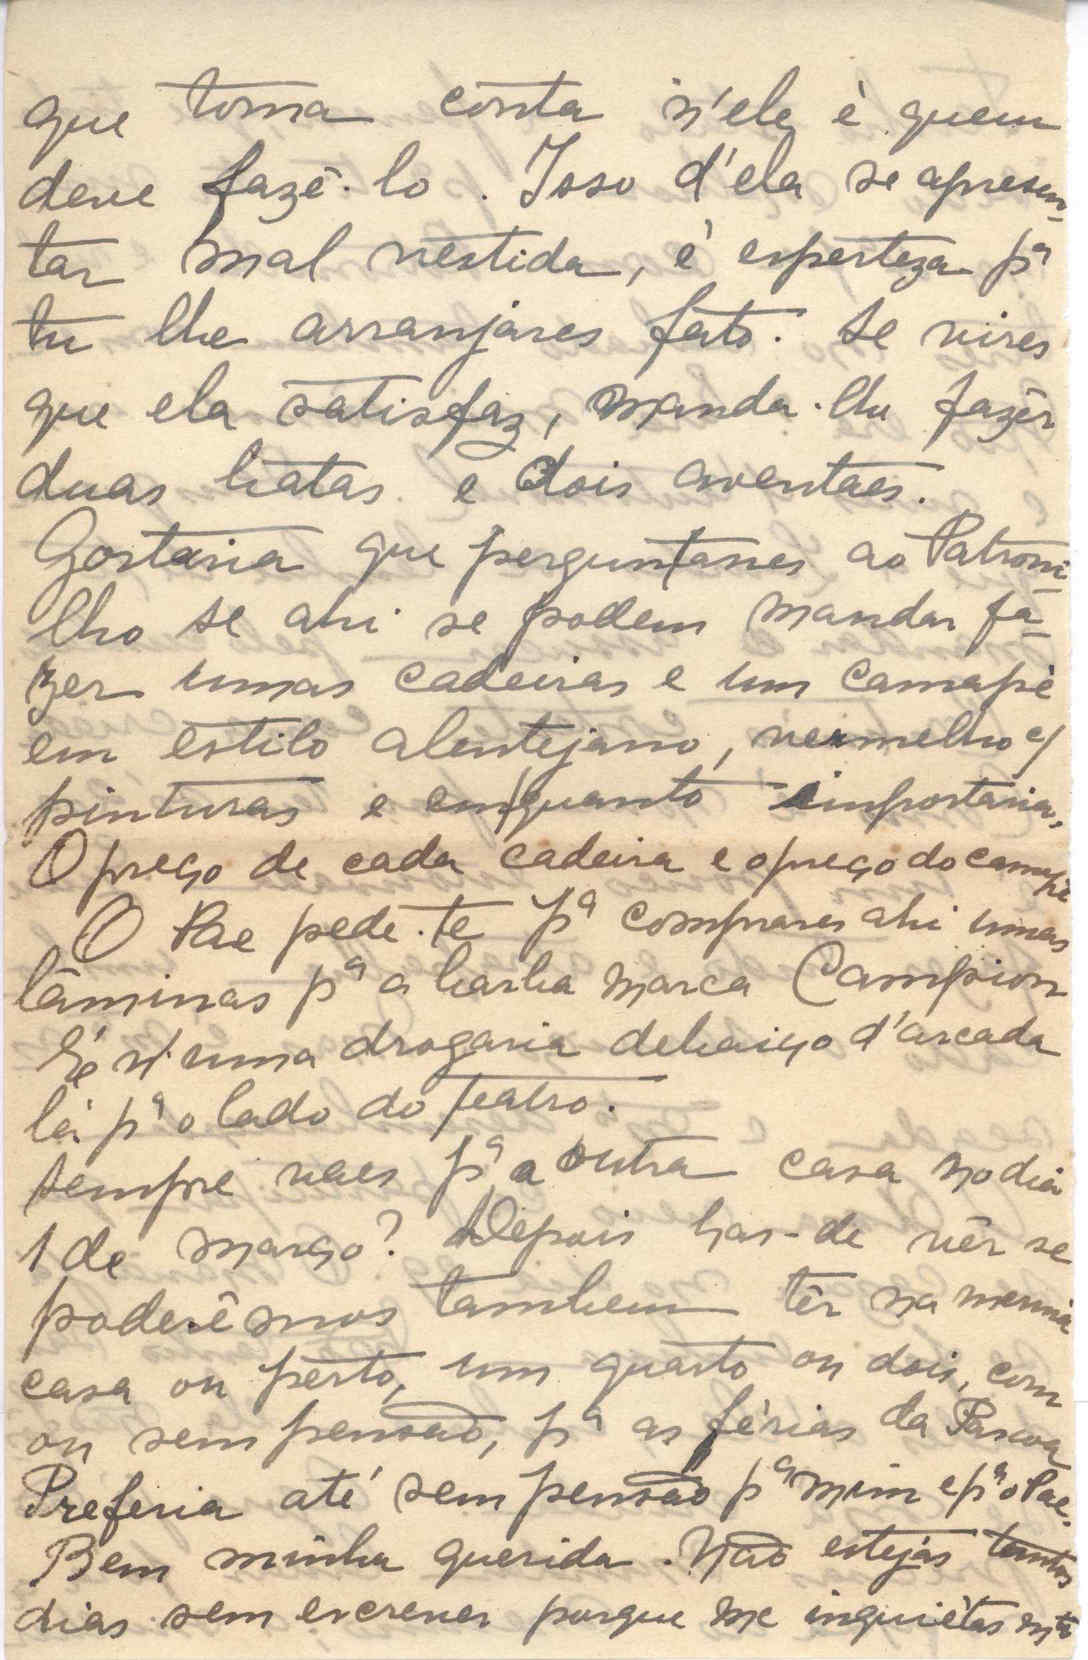 que toma conta n'ele è quem
deve fazê-lo. Isso d'ela se apresen-
tar mal vestida, é esperteza pª
tu lhe arranjares fato. Se vires
que ela satisfaz, manda-lhe fazêr
duas batas e dois aventaes.
Gostaria que perguntasses ao Patroni-
lho se ahi se podem mandar fa-
zer umas cadeiras e um camapè
em estilo alentejano, vermelho c/
pinturas e em quanto importaria.
O preço de cada cadeira e o preço do camapè
O Pae pede-te pª comprares ahi umas
lâminas pª a barba marca Campion
É n'uma drogaria debaixo d'arcada
lá pª o lado do teatro.
Sempre vaes pª a outra casa no dia
1 de março? Depois has-de vêr se
poderêmos tambem têr na mesma
casa ou perto, um quarto ou dois, com
ou sem pensão, pª as férias da Pascoa
Preferia até sem pensão pª mim e pª o Pae.
Bem minha querida. Não estejas tantos
dias sem escrever porque me inquiétas mtº